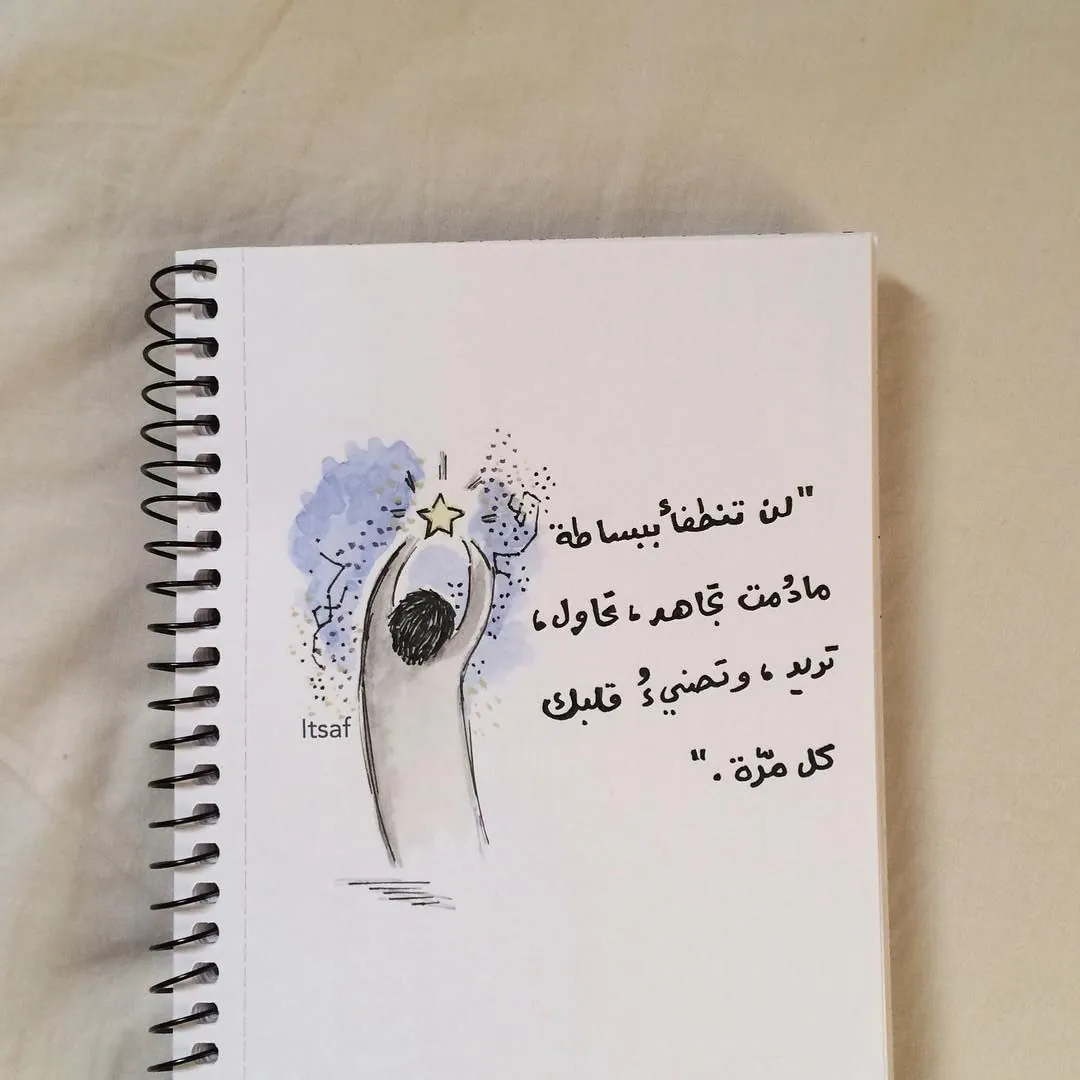 "لن تنطفأ ببساطة
مادُمت تجاهد، تحاول،
تريد، وتضيءُ قلبك
كل مرّة."
Itsaf